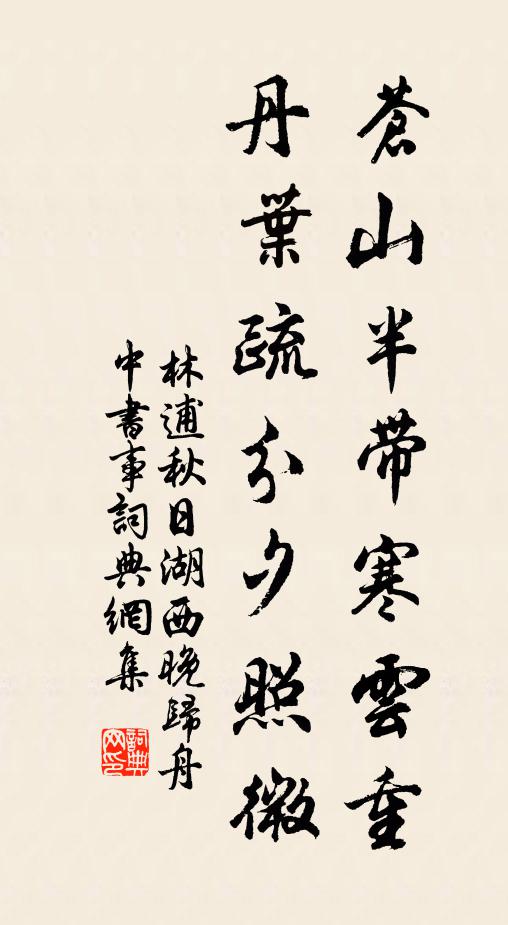 蒼山半帶寒雲重
丹葉疏分夕照微
林逋秋日湖西晚歸舟
中書事詞典網集
詞典
网印